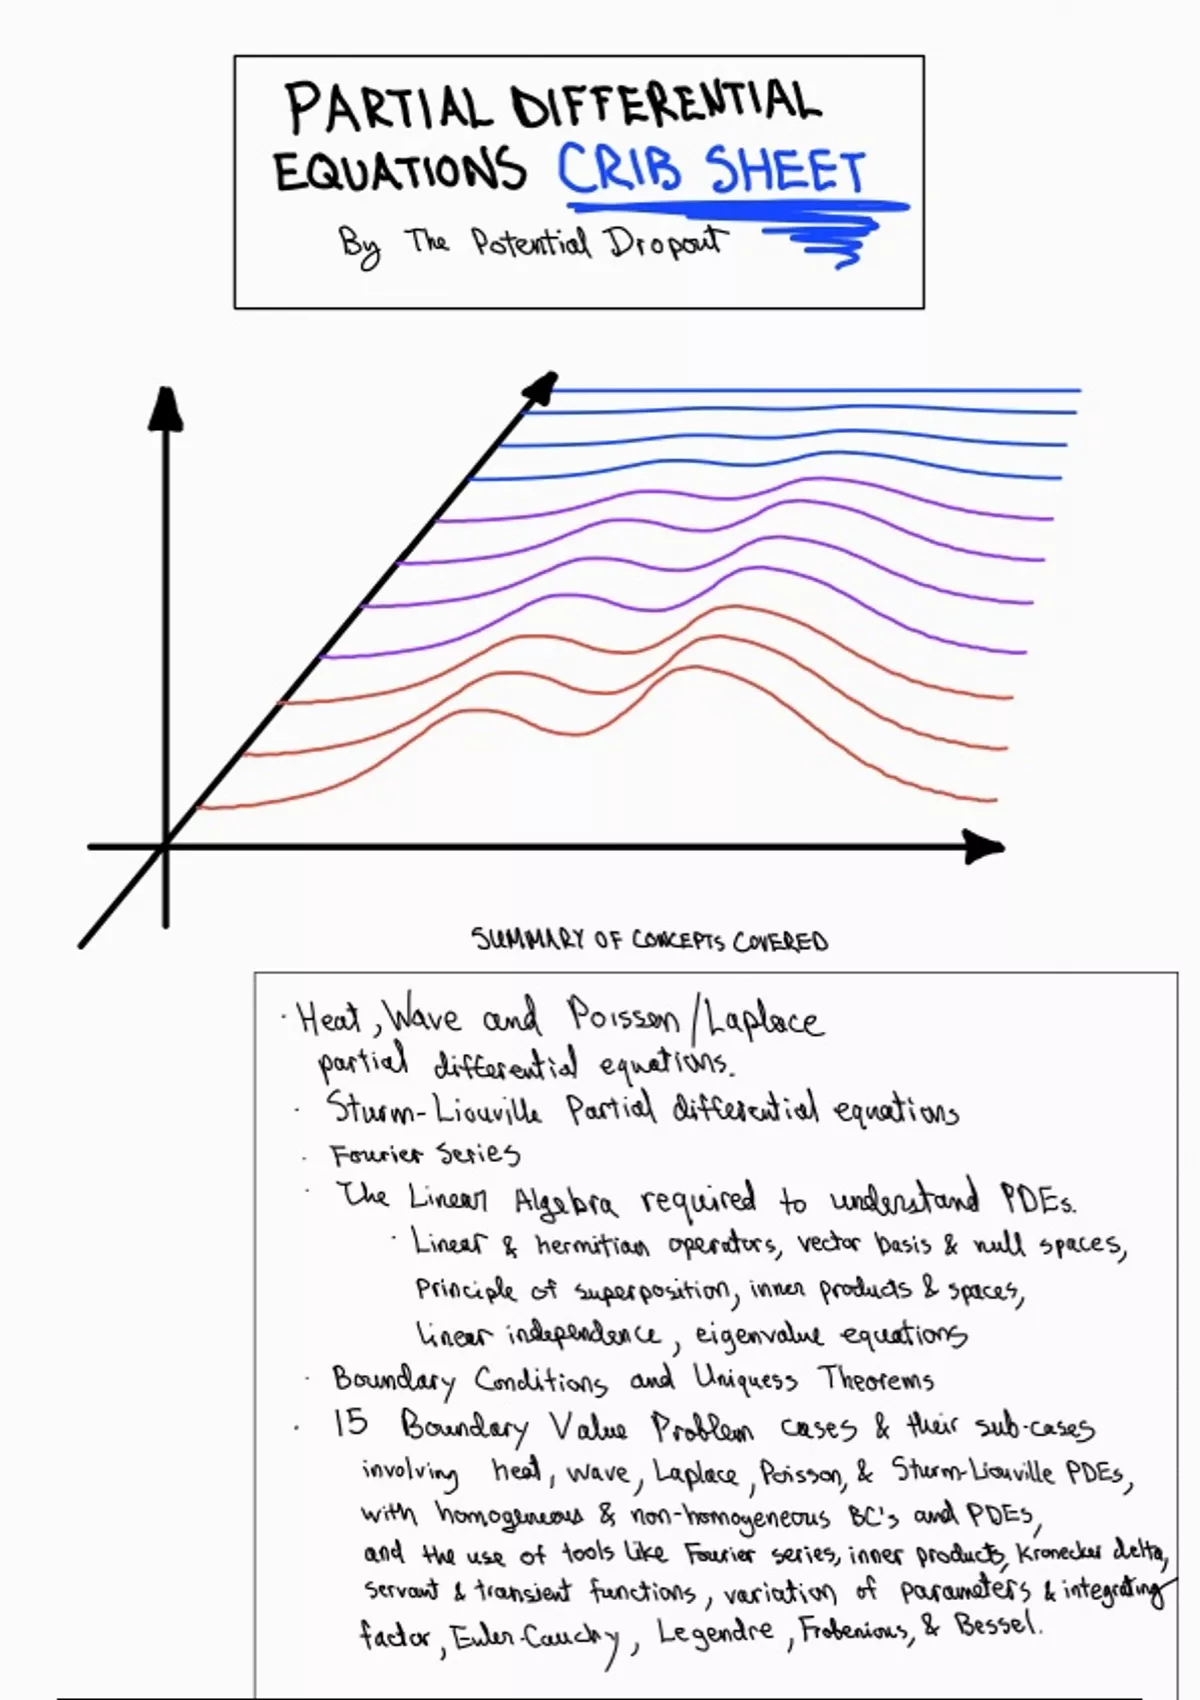 PARTIAL DIFFERENTIAL
EQUATIONS CRIB SHEET
By The Potential Dropout
SUMMARY OF CONCEPTS COVERED
· Heat, Wave and Poisson/Laplace
partial differential equations.
· Sturm-Liouville Partial differential equations
· Fourier Series
· The Linear Algebra required to understand PDEs.
· Linear & hermitian operators, vector basis & null spaces,
Principle of superposition, inner products & spaces,
linear independence, eigenvalue equations
· Boundary Conditions and Uniquess Theorems
· 15 Boundary Value Problem cases & their sub-cases
involving heat, wave, Laplace, Poisson, & Sturm-Liouville PDEs,
with homogeneous & non-homogeneous BC's and PDEs,
and the use of tools like Fourier series, inner products, Kronecker delta,
servant & transient functions, variation of parameters & integrating
factor, Euler-Cauchy, Legendre, Frobenious, & Bessel.